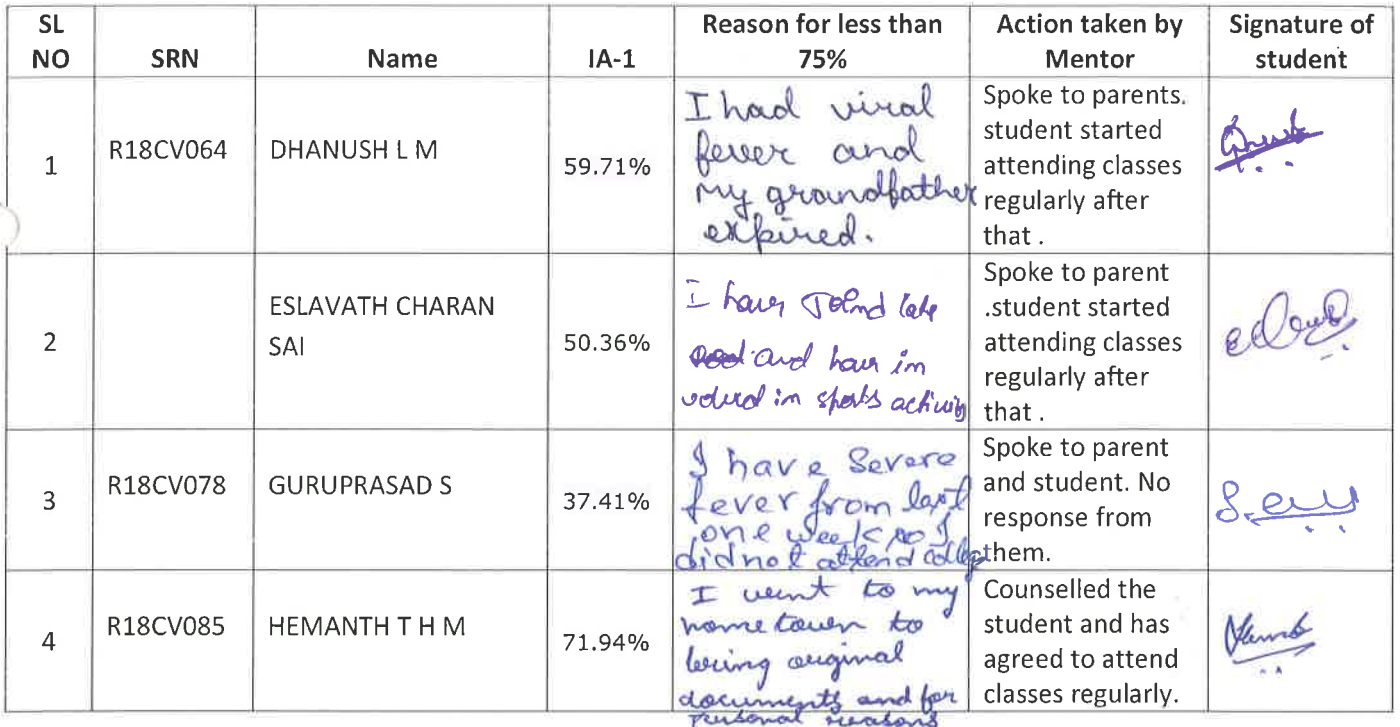 SL NO SRN Name IA-1 Reason for less than 75% Action taken by Mentor Signature of student
1 R18CV064 DHANUSH L M 59.71%
I had viral
fever and
my grandfather
expired.
Spoke to parents.
student started
attending classes
regularly after
that .
2 ESLAVATH CHARAN
SAI
50.36%
I have Joind late
and have in
volved in sports activity
Spoke to parent
.student started
attending classes
regularly after
that .
3 R18CV078 GURUPRASAD S 37.41%
I have Severe
fever from last
one week so I
did not attend college
Spoke to parent
and student. No
response from
them.
4 R18CV085 HEMANTH T H M 71.94%
I went to my
home town to
bring original
documents and for
Personal reasons
Counselled the
student and has
agreed to attend
classes regularly.